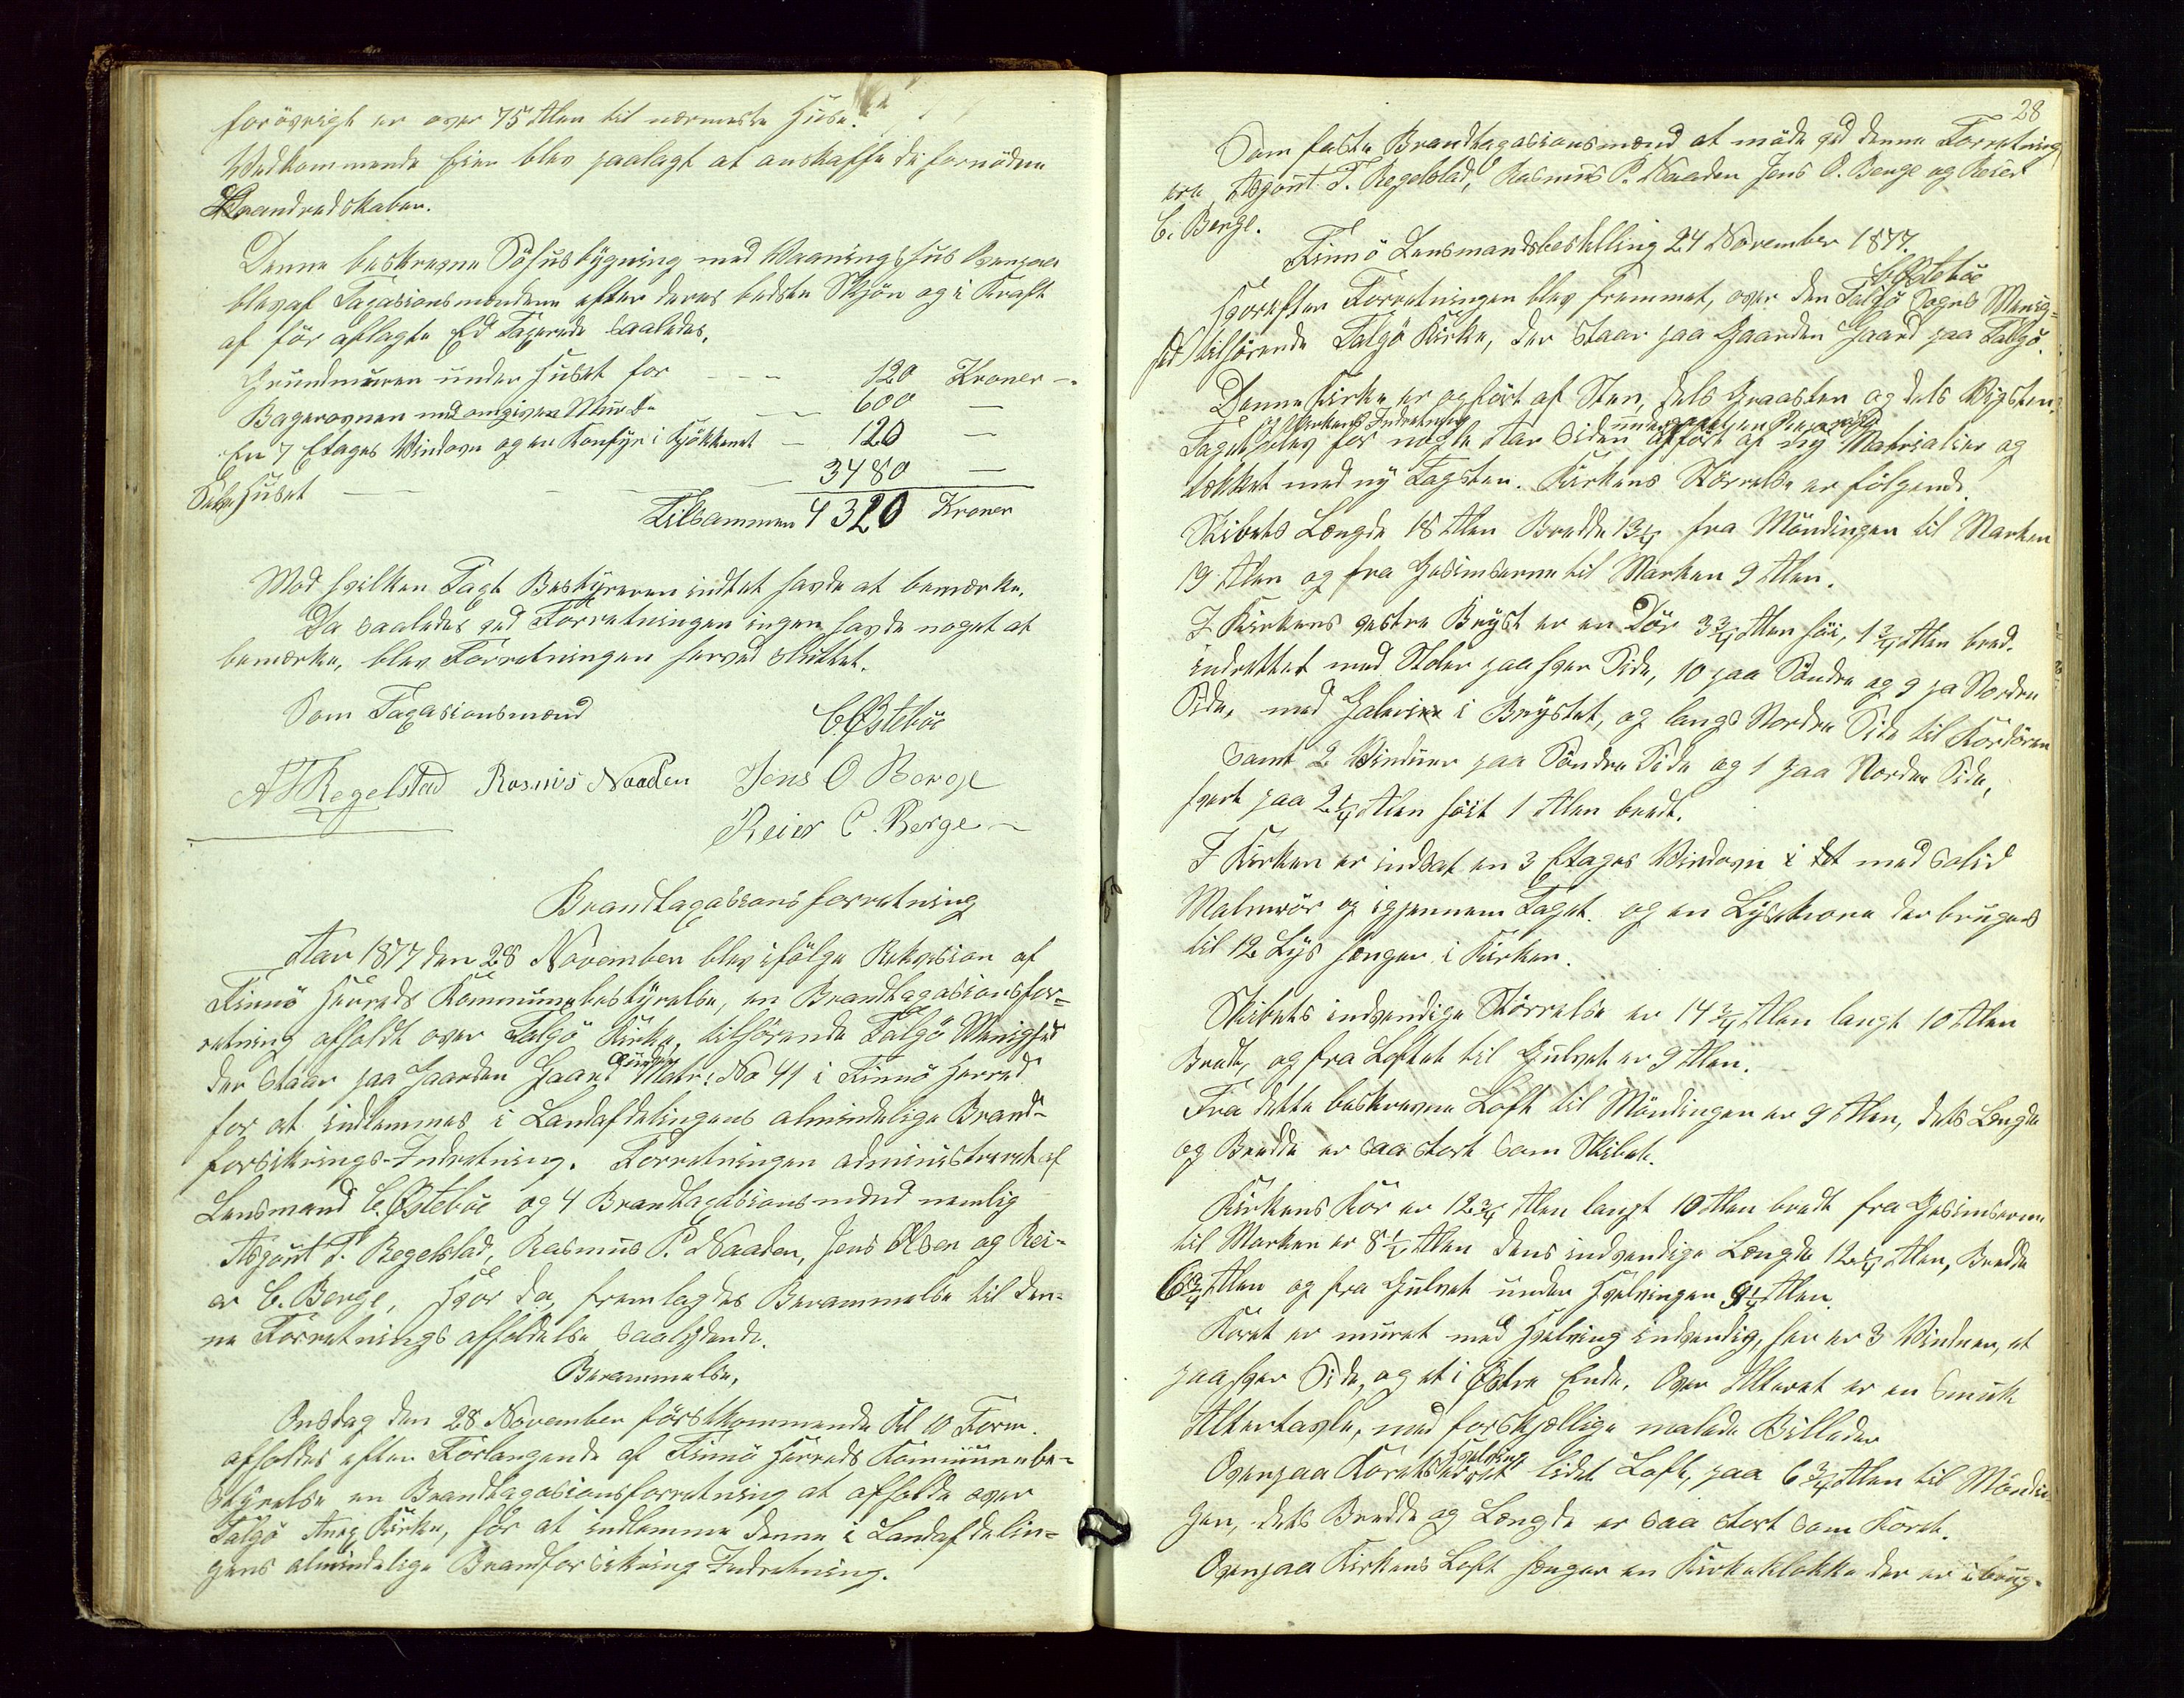 forøvrigt er over 75 Alen til nærmeste Huse.
Vedkommende Eier blev paalagt at anskaffe de fornødne
Brandredskaber.
Denne beskrevne Søhusbygning med Vaaningshus Ovenpaa
blev af Taxasionsmændene efter deres bedste Skjøn og i Kraft
af før aflagte Ed Taxerede saaledes,
Grundmuren under Huset for - - - 120 Kroner -
Bagerovnen med omgiven Mur de — 600 —
En 7 Etages Vindovn og en Komfyr i Kjøkkenet — 120 —
Selve Huset — — — 3480 —
Tilsammen 4320 Kroner
Mod hvilken Taxt Bestyreren indtet havde at bemærke.
Da saaledes ved Forretningen ingen havde noget at
bemærke, blev Forretningen herved sluttet.
Som Taxasionsmænd
C. Østebøe
A T Regelstad Rasmus Naaden Jens O. Berge
Reier C. Berge
Brandtaxasionsforretning
Aar 1877 den 28 November blev ifølge Rekvision af
Finnø Herreds Kommunebestyrelse, en Brandtaxasionsfor=
retning afholdt over Talgø Kirke, tilhørende Talgø Menighed
der staar paa Gaarden Gaard Matr: No 41 i Finnø Herred
for at indlemmes i Landafdelingens almindelige Brand-
forsikrings-Indretning. Forretningen administreret af
Lensmand C. Østebøe og 4 Brandtaxasionsmænd nemlig
Asgout T. Regelstad, Rasmus P. Naaden, Jens Olsen og Rei-
er C. Berge, hvor da, fremlagdes Berammelse til den-
ne Forretnings afholdelse saalydende.
Berammelse,
Onsdag den 28 November førstkommende Kl 10 Form.
afholdes efter Forlangende af Finnø Herreds Kommunebe-
styrelse en Brandtaxasionsforretning at afholde over
Talgø Anex Kirke, for at indlemme denne i Landafdelin=
gens almindelige Brandforsikring Indretning.
28
Som faste Brandtaxasionsmænd at møde ved denne Forretning
ere, Asgout T. Regelstad, Rasmus P. Naaden Jens O. Berge og Reier
C. Berge.
Finnø Lensmandsbestilling 24 November 1877.
C. Østebøe
Hvorefter Forretningen blev fremmet, over den Talgø Sogns Menig=
hed tilhørende Talgø Kirke, der staar paa Gaarden Gaard paa Talgø.
Denne Kirke er opført af Sten, dels Graasten og dels Vegsten.
og Kirkens Indretning undergaaet en Reparasjon
Taget blev for nogle Aar siden opført af ny Matrialier og
tækket med ny Tagsten. Kirkens Størrelse er følgende
Skibets Længde 18 Alen Bredde 13 1/4 fra Møndingen til Marken
19 Alen og fra Gesimserne til Marken 9 Alen.
I Kirkens vestre Bryst er en Dør 3 3/4 Alen høi, 1 3/4 Alen bred.
indrettet med Stoler paa hver Side, 10 paa Søndre og 9 pa Nordre
Side, med Galeri i Brystet, og langs Nordre Side til Kordøren
samt 2 Vinduer paa Søndre Side og 1 paa Nordre Side,
hvert paa 2 1/4 Alen høit 1 Alen bredt.
I Kirken er indsat en 3 Etages Vindovn med solid
Malmrør og igjennem Taget. og en Lyskrone der bruges
til 12 Lys hænger i Kirken.
Skibets indvendige Størrelse er 14 3/4 Alen langt 10 Alen
Bredt, og fra Loftet til Gulvet er 9 Alen.
Fra dette beskrevne Loft til Møndingen er 9 Alen, dets Længde
og Bredde er saa stort som Skibet.
Kirkens Kor er 12 3/4 Alen langt 10 Alen bredt fra Gesimserne
til Marken er 8 1/2 Alen dens indvendige Længde 12 1/4 Alen, Bredde
6 3/4 Alen og fra Gulvet under Hvelvingen 9 1/4 Alen.
Koret er muret med Hvelving indvendig, her er 3 Vinduer, et
paa hver Side, og et i Østre Ende. Over Alteret er en smuk
Altertavle, med forskjellige malede Billeder
Hvelving
Ovenpaa Korets er et lidet Loft, paa 6 3/4 Alen til Møndin-
gen, dets Bredde og Længde er saa stort som Koret.
Ovenpaa Kirkens Loft hænger en Kirkeklokke der er i brug.